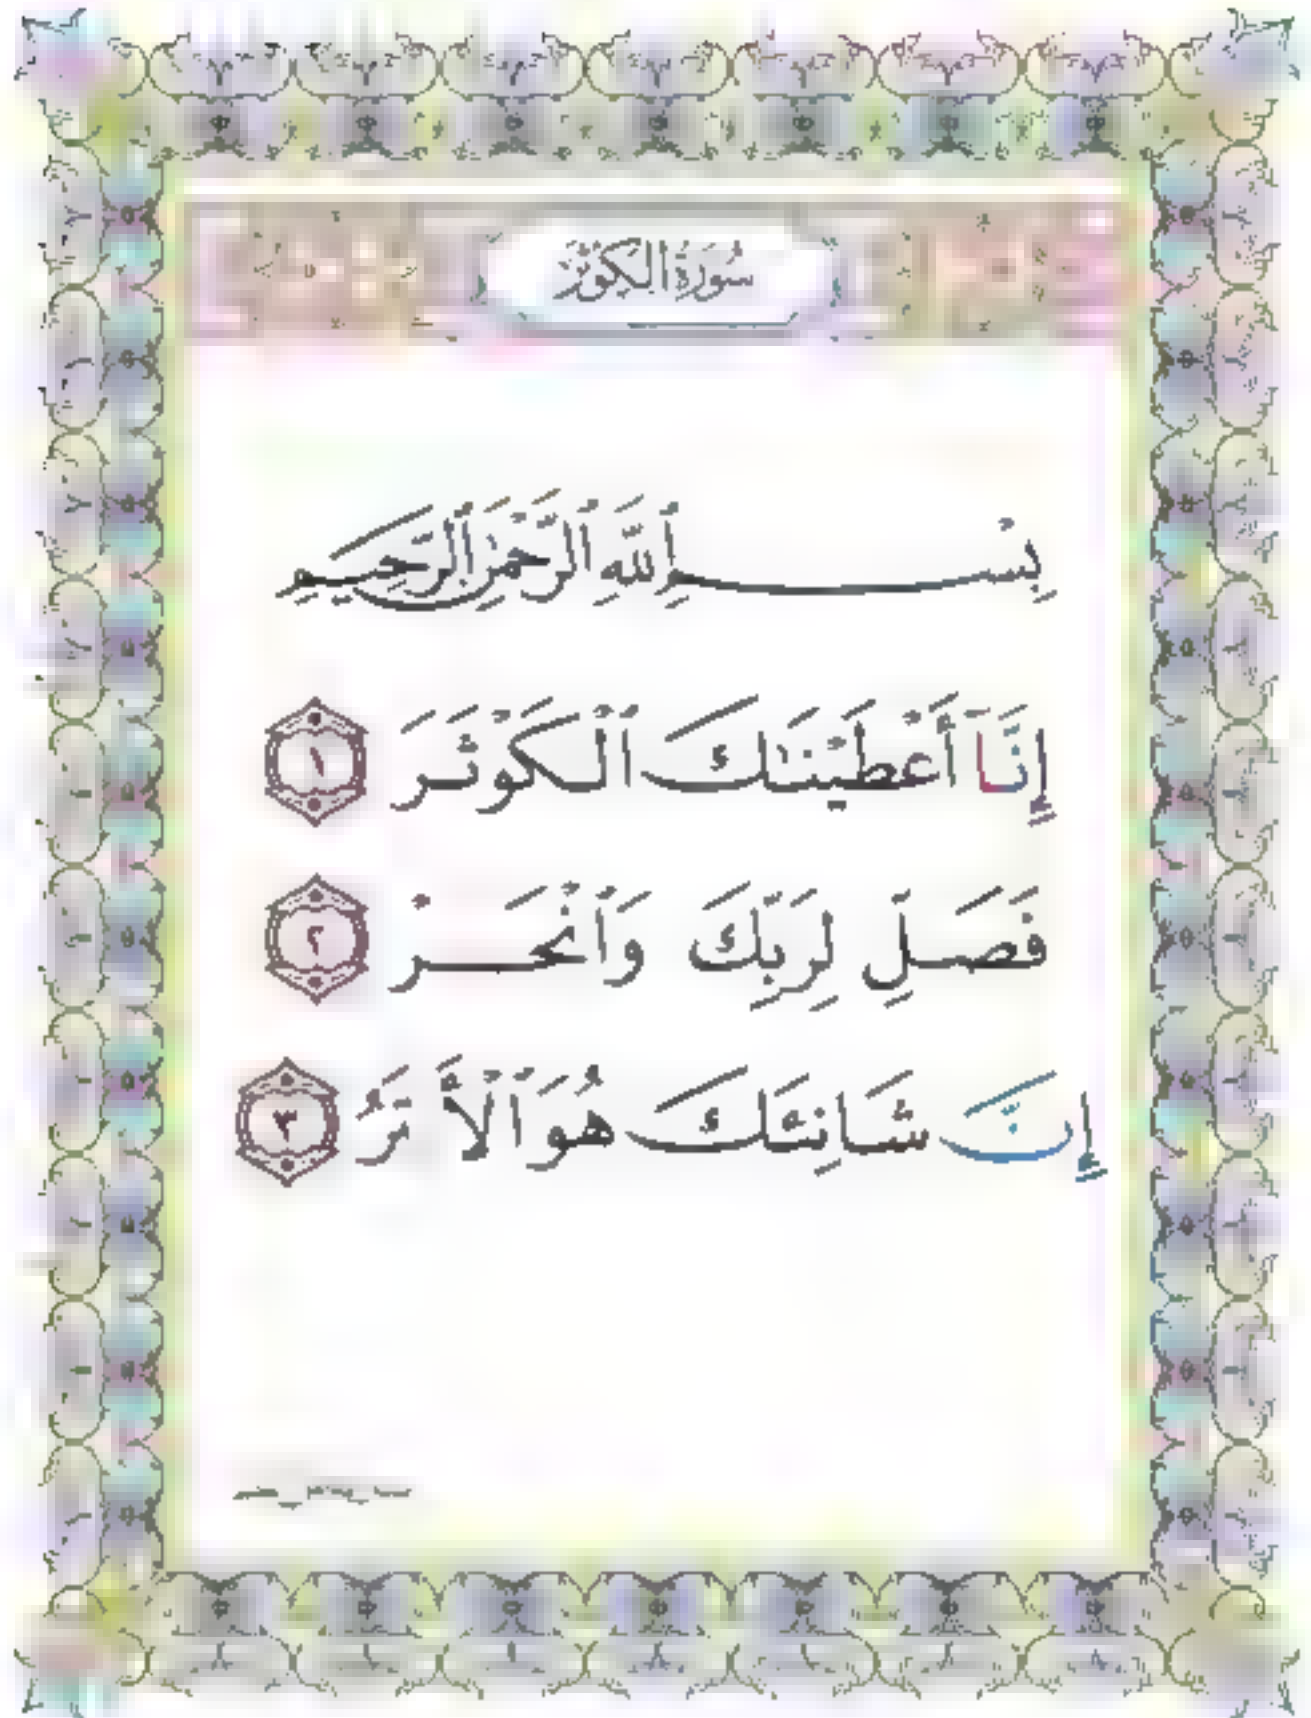 سُورَةُ الْكَوْثَرِ
بِسْمِ ٱللَّهِ ٱلرَّحْمَٰنِ ٱلرَّحِيمِ
إِنَّآ أَعْطَيْنَٰكَ ٱلْكَوْثَرَ ١
فَصَلِّ لِرَبِّكَ وَٱنْحَرْ ٢
إِنَّ شَانِئَكَ هُوَ ٣